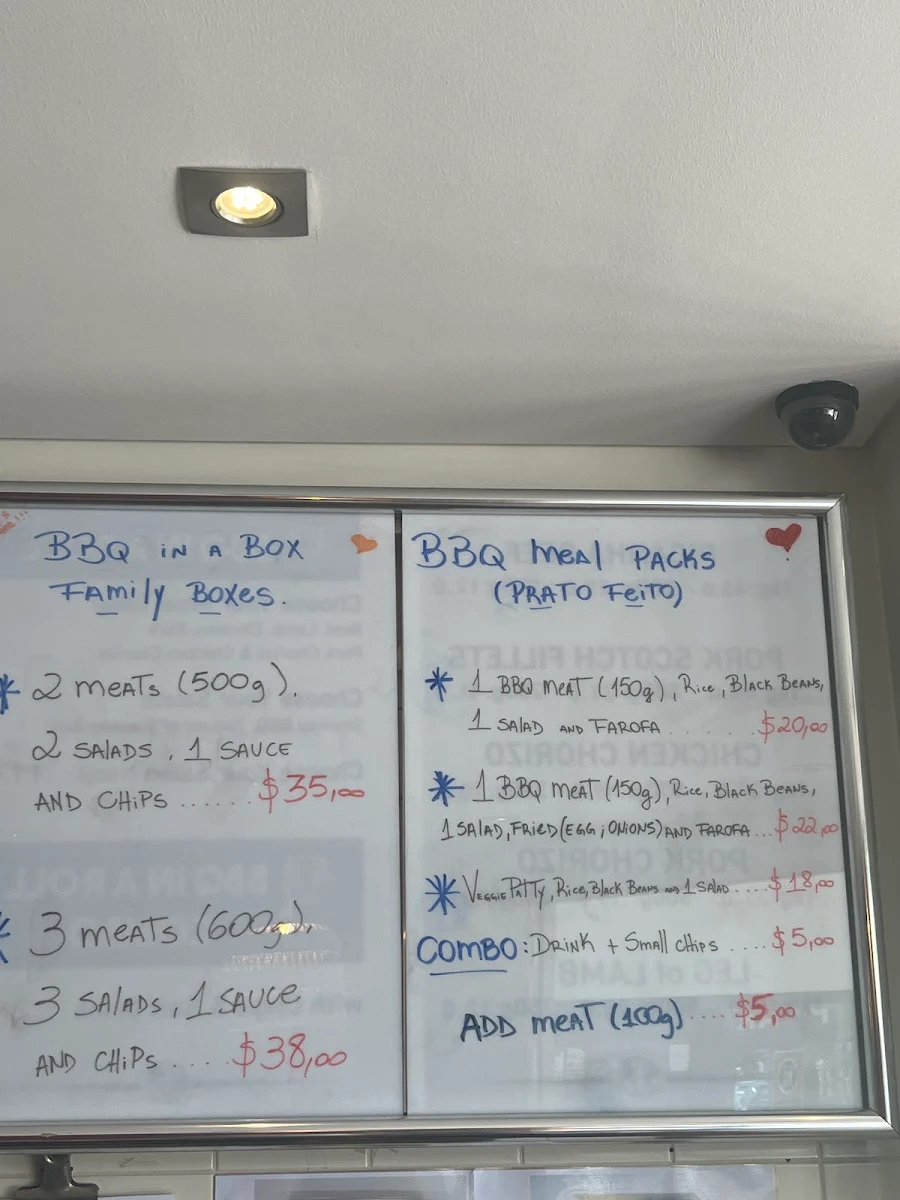 BBQ IN A BOX
FAMILY BOXES.
* 2 MEATS (500g).
2 SALADS, 1 SAUCE
AND CHIPS ...... $35,00
3 MEATS (600g),
3 SALADS, 1 SAUCE
AND CHIPS .... $38,00
BBQ MEAL PACKS
(PRATO FEITO)
* 1 BBQ MEAT (150g), RICE, BLACK BEANS,
1 SALAD AND FAROFA . . . . . $20,00
* 1 BBQ MEAT (150g), RICE, BLACK BEANS,
1 SALAD, FRIED (EGG; ONIONS) AND FAROFA ... $22,00
* VEGGIE PATTY, RICE, BLACK BEANS AND 1 SALAD .... $18,00
COMBO: DRINK + SMALL CHIPS .... $5,00
ADD MEAT (100g) .... $5,00